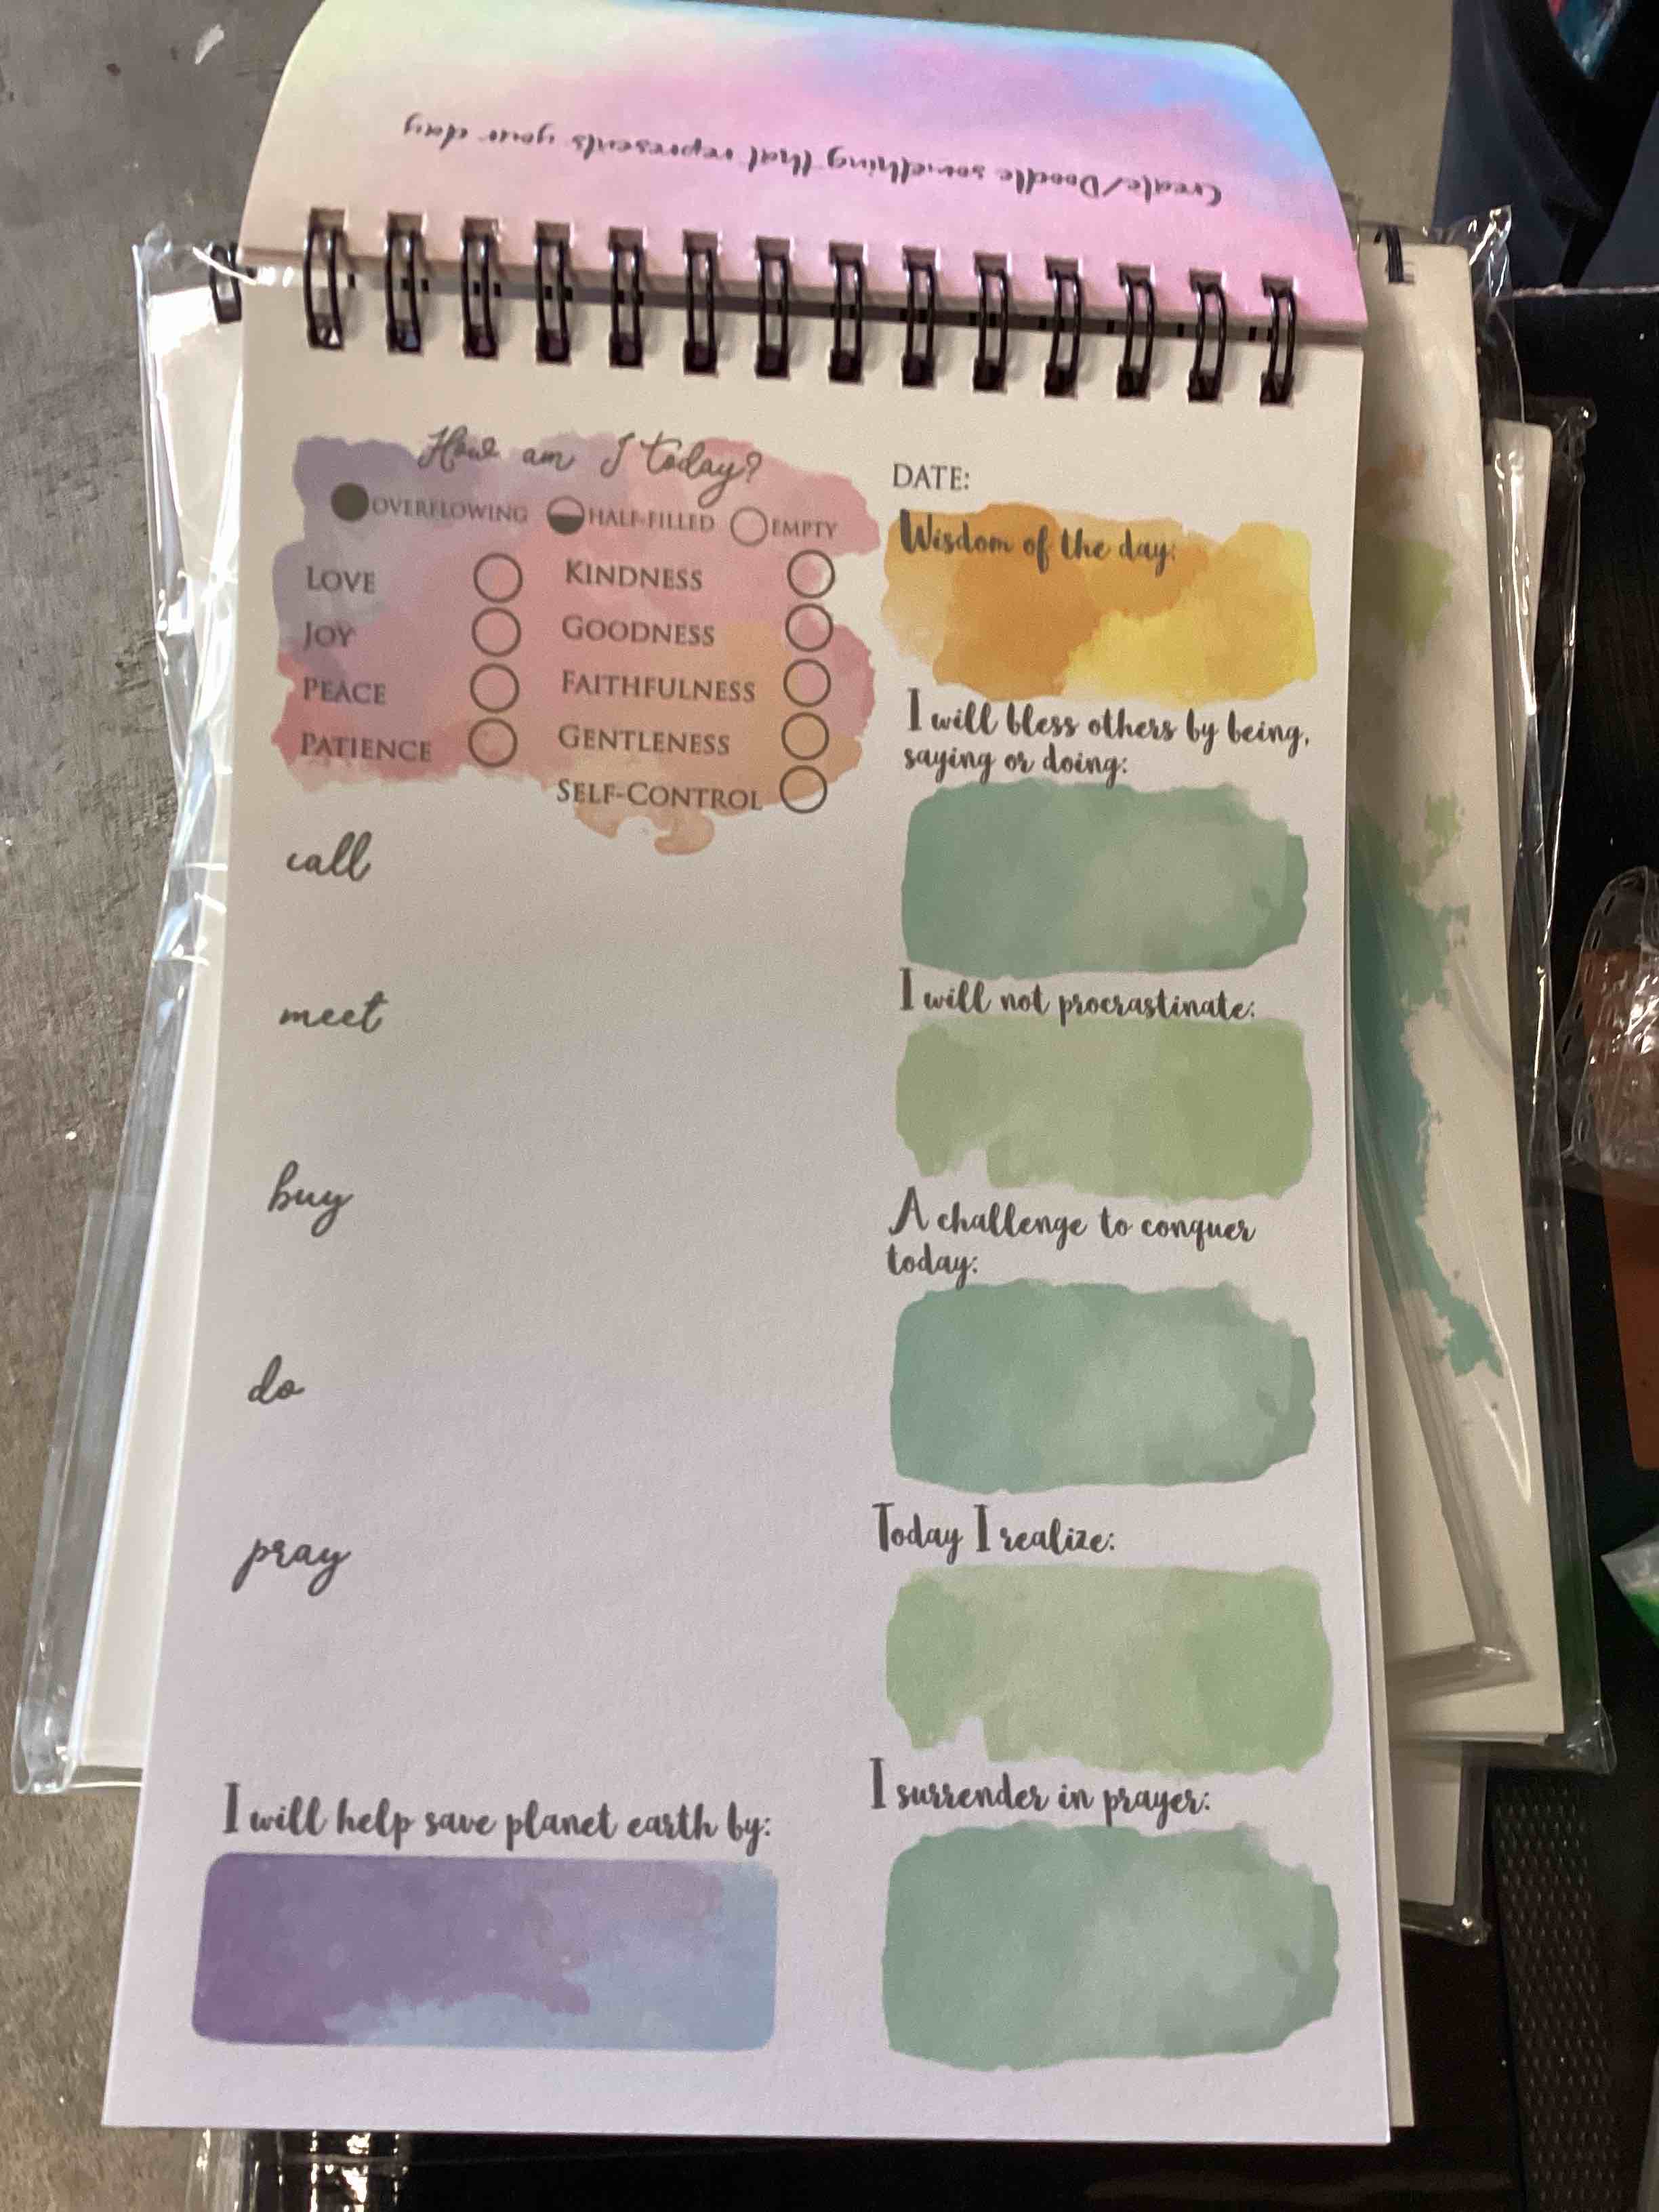 Create/Doodle something that represents your day
How am I today?
OVERFLOWING HALF-FILLED EMPTY
LOVE
JOY
PEACE
PATIENCE
KINDNESS
GOODNESS
FAITHFULNESS
GENTLENESS
SELF-CONTROL
call
meet
buy
do
pray
I will help save planet earth by:
DATE:
Wisdom of the day:
I will bless others by being,
saying or doing:
I will not procrastinate:
A challenge to conquer
today:
Today I realize:
I surrender in prayer: